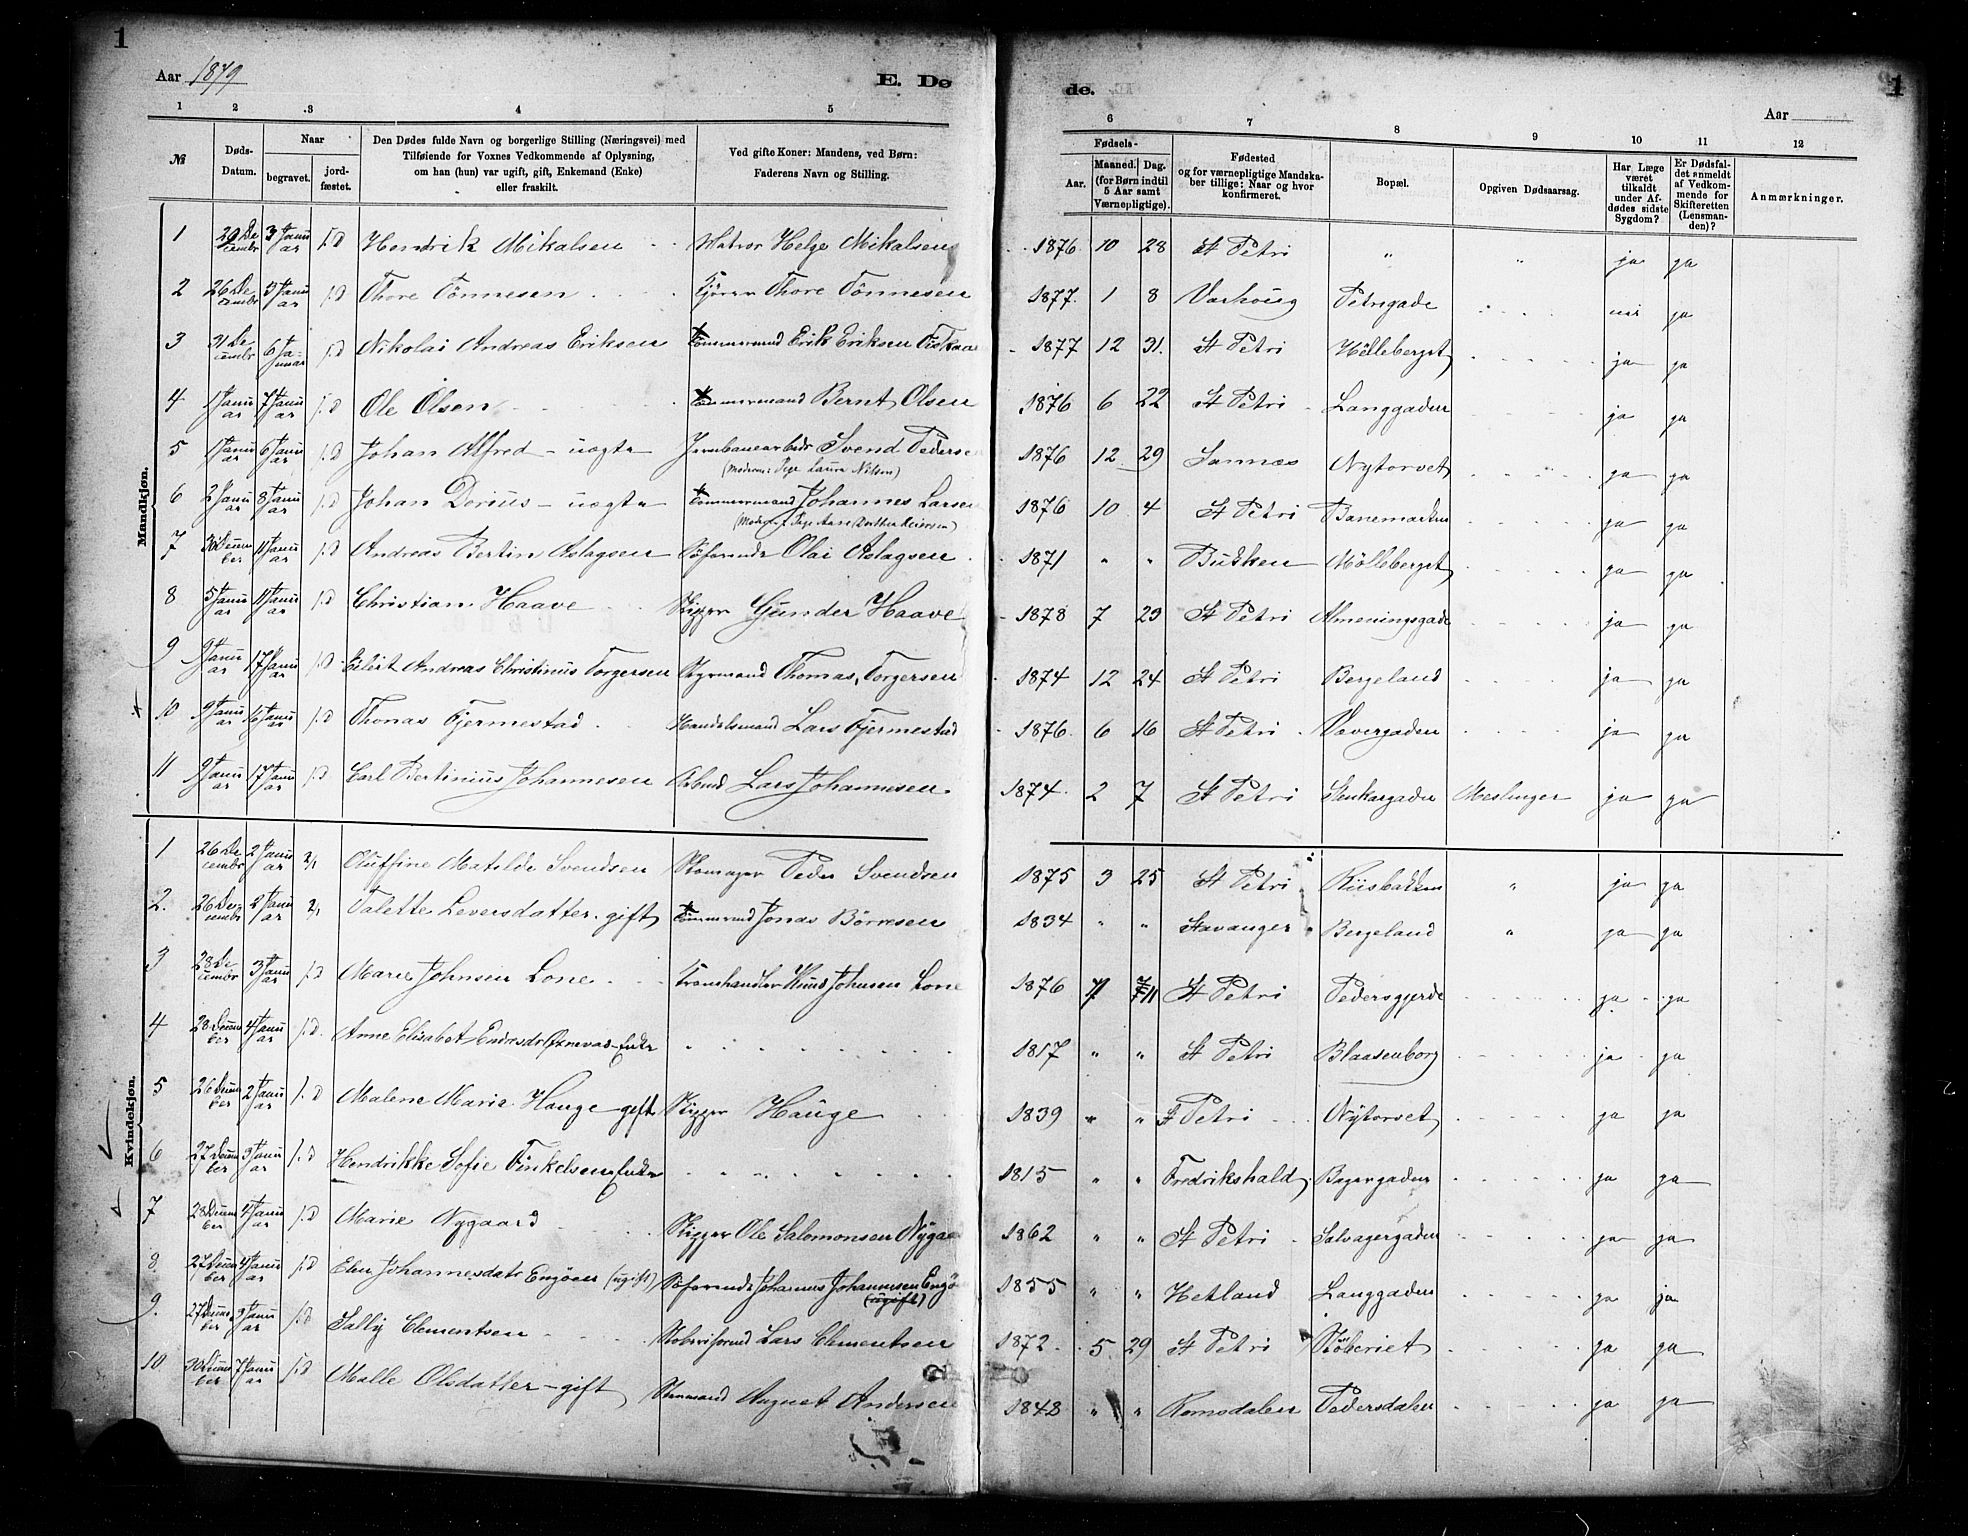 1
Aar 1879
E. Dø
1 2 3 4 5
№
Døds-Datum.
Naar
begravet. jord-fæstet.
Den Dødes fulde Navn og borgerlige Stilling (Næringsvei) med
Tilføiende for Voxnes Vedkommende af Oplysning,
om han (hun) var ugift, gift, Enkemand (Enke)
eller fraskilt.
Ved gifte Koner: Mandens, ved Børn:
Faderens Navn og Stilling.
Mandkjøn.
1 29 December 3 Januar f.D Hendrik Mikalsen Matros Helge Mikalsen
2 26 December 3 Januar f.D Thore Tönnesen Thore Tönnesen
3 31 December 6 Januar f.D Nikolai Andreas Eriksen Tömmermand Erik Eriksen
4 1 Januar 7 Januar f.D Ole Olsen Tömmermand Bernt Olsen
5 1 Januar 6 Januar f.D Johan Alfred - uægte Jernbanearbeider Svend Pedersen
(Moderen: Pige Laura Nilsen)
6 2 Januar 8 Januar f.D Johan Dorius - uægte Tömmermand Johannes Larsen
7 30 December 11 Januar f.D Andreas Bertin Aslagsen Söfarende Olai Aslagsen
8 5 Januar 11 Januar f.D Christian Haave Skipper Gunder Haave
9 9 Januar 17 Januar f.D Eilert Andreas Christinus Torgersen Styrmand Thomas Torgersen
10 9 Januar 16 Januar f.D Thonas Fjermestad Handelsmand Lars Fjermestad
11 9 Januar 17 Januar f.D Carl Bertinius Johannesen Arbmd Lars Johannesen.
Kvindekjøn.
1 26 December 2 Januar 2/1 Oluffine Matilde Svendsen Skomager Peder Svendsen
2. 26 December 2 Januar 2/1 Talette Leversdatter - gift Tömmermd Jonas Börresen
3 28 December 3 Januar f.D Marie Johnsen Lone Tranhandler Knud Johnsen Lone
4 28 December 4 Januar f.D. Anne Elisabet Endresdr Oxnevad - Enke "
5 26 December 2 Januar f.D Malene Marie Hauge - gift Skipper Hauge
6 27 December 3 Januar f.D Hendrikke Sofie Finkelsen - Enke "
7 28 December 4 Januar f.D Marie Nygaard Skipper Ole Salomonsen Nygaard
8 27 December 4 Januar f.D Elen Johannesdatr Engöen (ugift) Söfarende Johannes Johannesen Engö
(ugift)
9. 27 December 3 Januar f.D Sally Clementsen Lars Clementsen
10 30 December 7 Januar f.D Malle Olsdatter - gift Stenmand August Andersen
de.
1
Aar
6 7 8 9 10 11 12
Fødsels-
Aar. Maaned. Dag.
(for Børn indtil
5 Aar samt
Værnepligtige).
Fødested
og for værnepligtige Mandska-
ber tillige: Naar og hvor
konfirmeret.
Bopæl.
Opgiven Dødsaarsag.
Har Læge
været
tilkaldt
under Af-
dødes sidste
Sygdom?
Er Dødsfal-
det anmeldt
af Vedkom-
mende for
Skifteretten
(Lensman-
den)?
Anmærkninger.
1876 10 28 St Petri " " ja ja
1877. 1 8 Varhoug Petrigade nei ja
1877 12 31. St Petri Mölleberget ja ja
1876 6 22 St Petri Langgaden ja ja
1876 12 29 Sannes Nytorvet ja ja
1876 10 4 St Petri Banemarken ja ja
1871 " " Bukken Mölleberget ja ja
1878 7 29 St Petri Almeningsgade ja ja
1874 12 24 St Petri Bergeland ja ja
1876 6 16 St Petri Vævergaden ja ja
1874 2 7 St Petri Stenkargaden Meslinger ja ja
1875 3 25 St Petri Riisbakken " ja ja
1834 " " Stavanger Bergeland " ja ja
1876 St Petri Pedersgjerde ja ja
1817 " " St Petri Blaasenborg ja ja
1839 " " St Petri Nytorvet ja ja
1815 " " Fredrikshald Bagergaden ja ja
1862 " " St Petri Salvagergaden ja ja
1855 " " Hetland Langgaden ja ja
1872 5 29 St Petri Stöberiet ja ja
1848 " " Romsdalen Pedersdalen ja ja